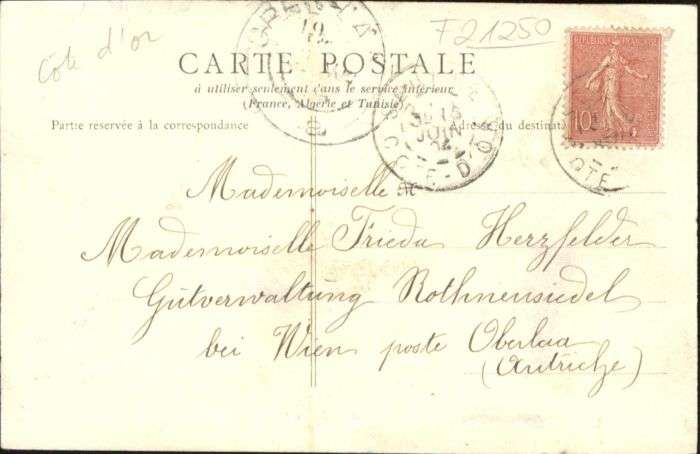 Côte d'or
F21250
CARTE POSTALE
à utiliser seulement dans le service intérieur
(France, Algérie et Tunisie)
Partie reservée à la correspondance
Adresse du destinat
REPUBLIQUE FRANÇAISE
10
15
JUIN
04
COTE-D'OR
Mademoiselle
Mademoiselle Frieda Herzfelder
Gutverwaltung Rothneusiedel
bei Wien poste Oberlaa
(Autriche)